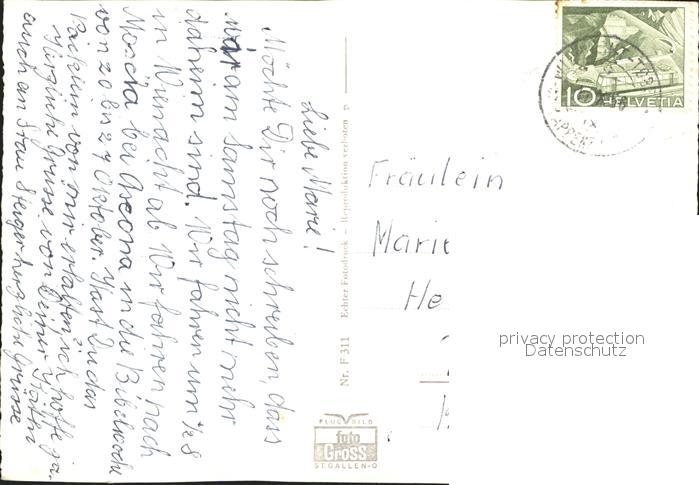 Liebe Marie!
Möchte Dir noch schreiben, dass
wir am Samstag nicht mehr
daheim sind. Wir fahren um ½8
in Wienacht ab. Wir fahren nach
Moscia bei Ascona in die Bibelwoche
von 20 bis 27 Oktober. Hast Du das
Päcklein von mir erhalten ich hoffe ja.
Herzliche Grüsse von Deiner
auch an Frau Steiger herzliche Grüsse
Nr. F 311 Echter Fotodruck – Reproduktion verboten p
FLUGBILD
foto
GROSS
ST.GALLEN-O
Fräulein
Marie
He
10 HELVETIA
privacy protection
Datenschutz